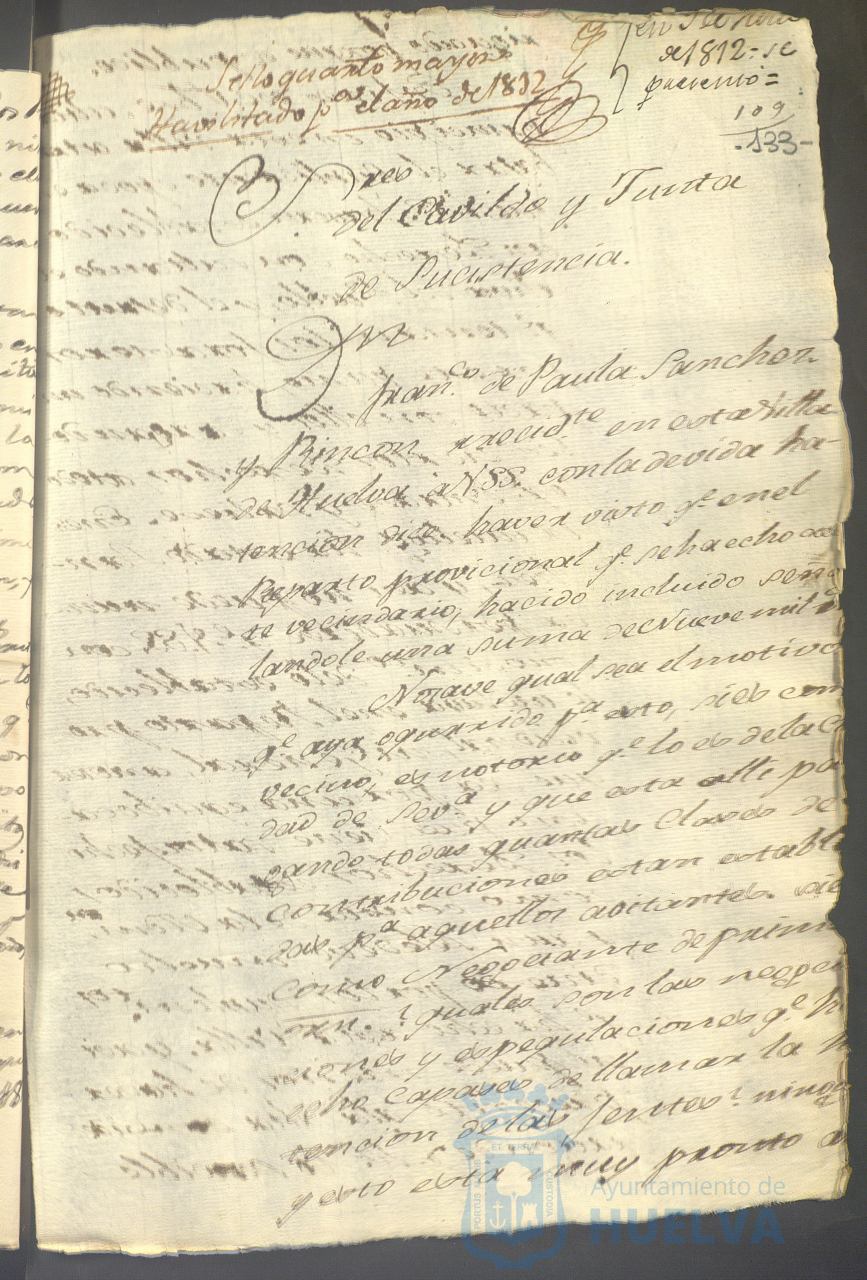 Sello quarto mayor
Havilitado pª el año de 1812
en
de 1812 = se
presentó =
109
-133-
Sres
del Cavildo y Junta
de Sucistencia.
Franco. de Paula Sanchez
y Rincon rrecidte en esta Villa
de Huelva a VSS. con la devida ha-
tencion dice haver visto qe. en el
Reparto provicional qe. se ha echo a es
te vecindario, ha cido incluido seña
landole una suma de Nueve mil
No save qual sea el motivo
qe. aya ogurrido pª esto, si es com
vecino, es notorio qe. lo es de la Ciu
dad de Sevª y que esta alli pa
gando todas quantas Clases de
contribuciones estan estable
das pª aquellos avitantes. sie
como Negociante de prim
orn. ¿quales son las negocia
ciones y espegulaciones qe. h
echo capases de llamar la h
tencion de las Jentes? ning
y esto está muy pronto a
PORTUS
ET TERRÆ
CUSTODIA
Ayuntamiento de
HUELVA